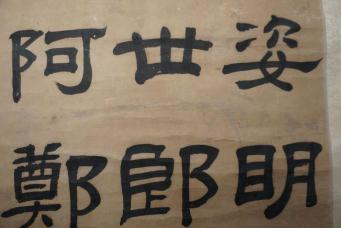 姿眀
世郎
阿鄭